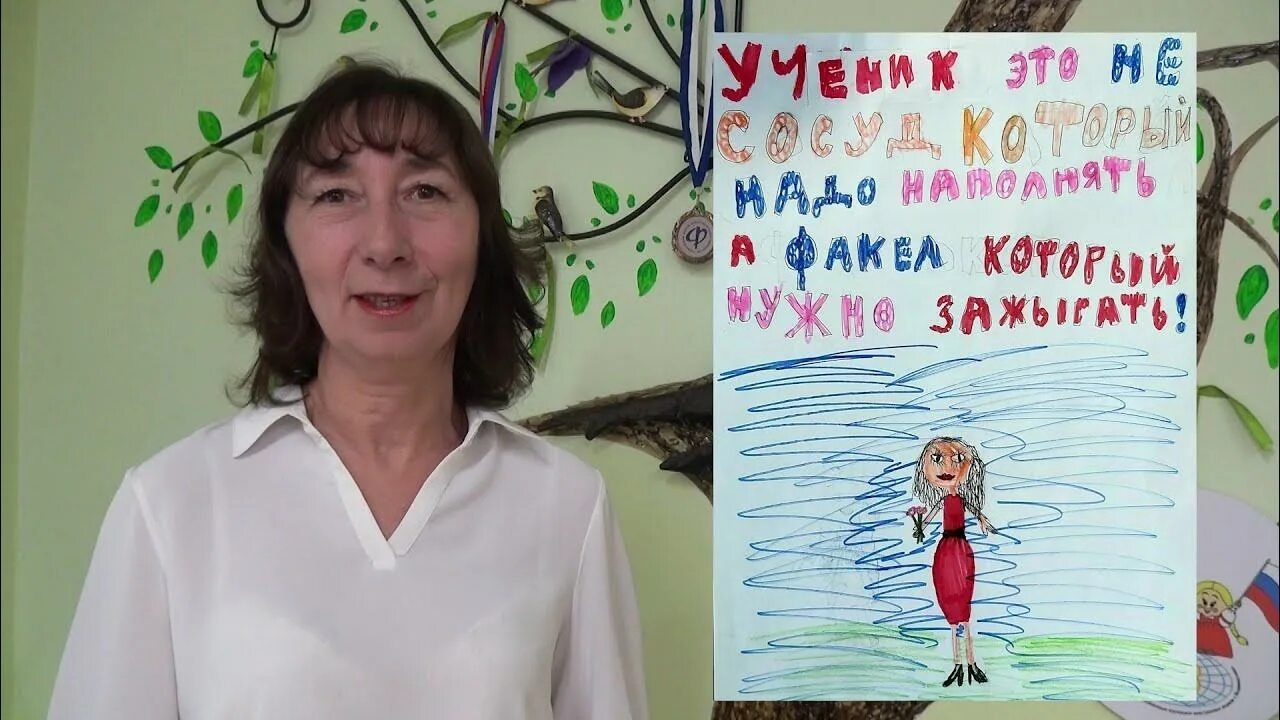 УЧЕНИК ЭТО НЕ
СОСУД КОТОРЫЙ
НАДО НАПОЛНЯТЬ
А ФАКЕЛ КОТОРЫЙ
НУЖНО ЗАЖЫГАТЬ!
Ф